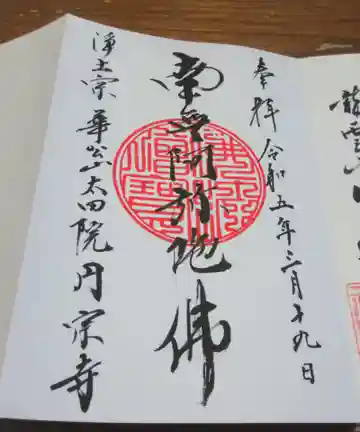 奉拝 令和五年三月十九日
南無阿弥陀佛
浄土宗 華台山太田院円宗寺